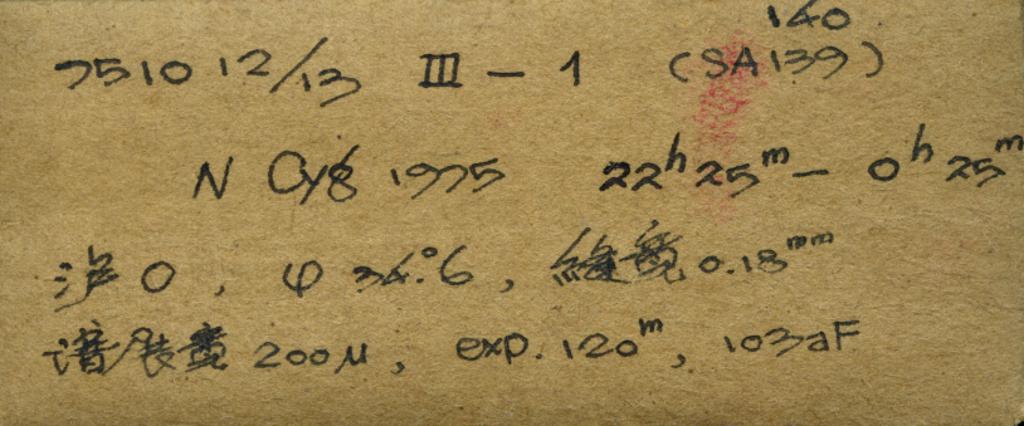 140
751012/13 III - 1 (SA139)
N Cyg 1975 22h25m - 0h25m
滤0, φ 36.°6, 缝宽0.18mm
谱展宽200μ, exp. 120m, 103aF